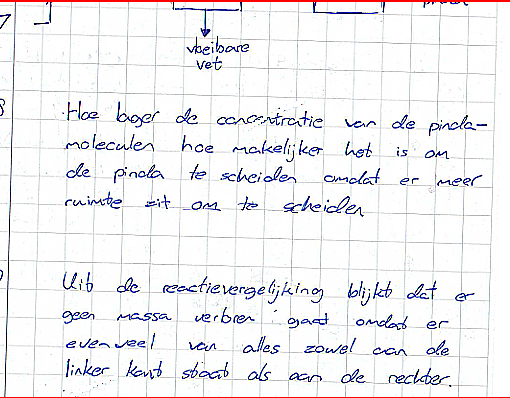 vloeibare
vet
Hoe lager de concentratie van de pinda-
moleculen hoe makelijker het is om
de pinda te scheiden omdat er meer
ruimte zit om te scheiden
Uit de reactievergelijking blijkt dat er
geen massa verloren gaat omdat er
evenveel van alles zowel aan de
linker kant staat als aan de rechter.